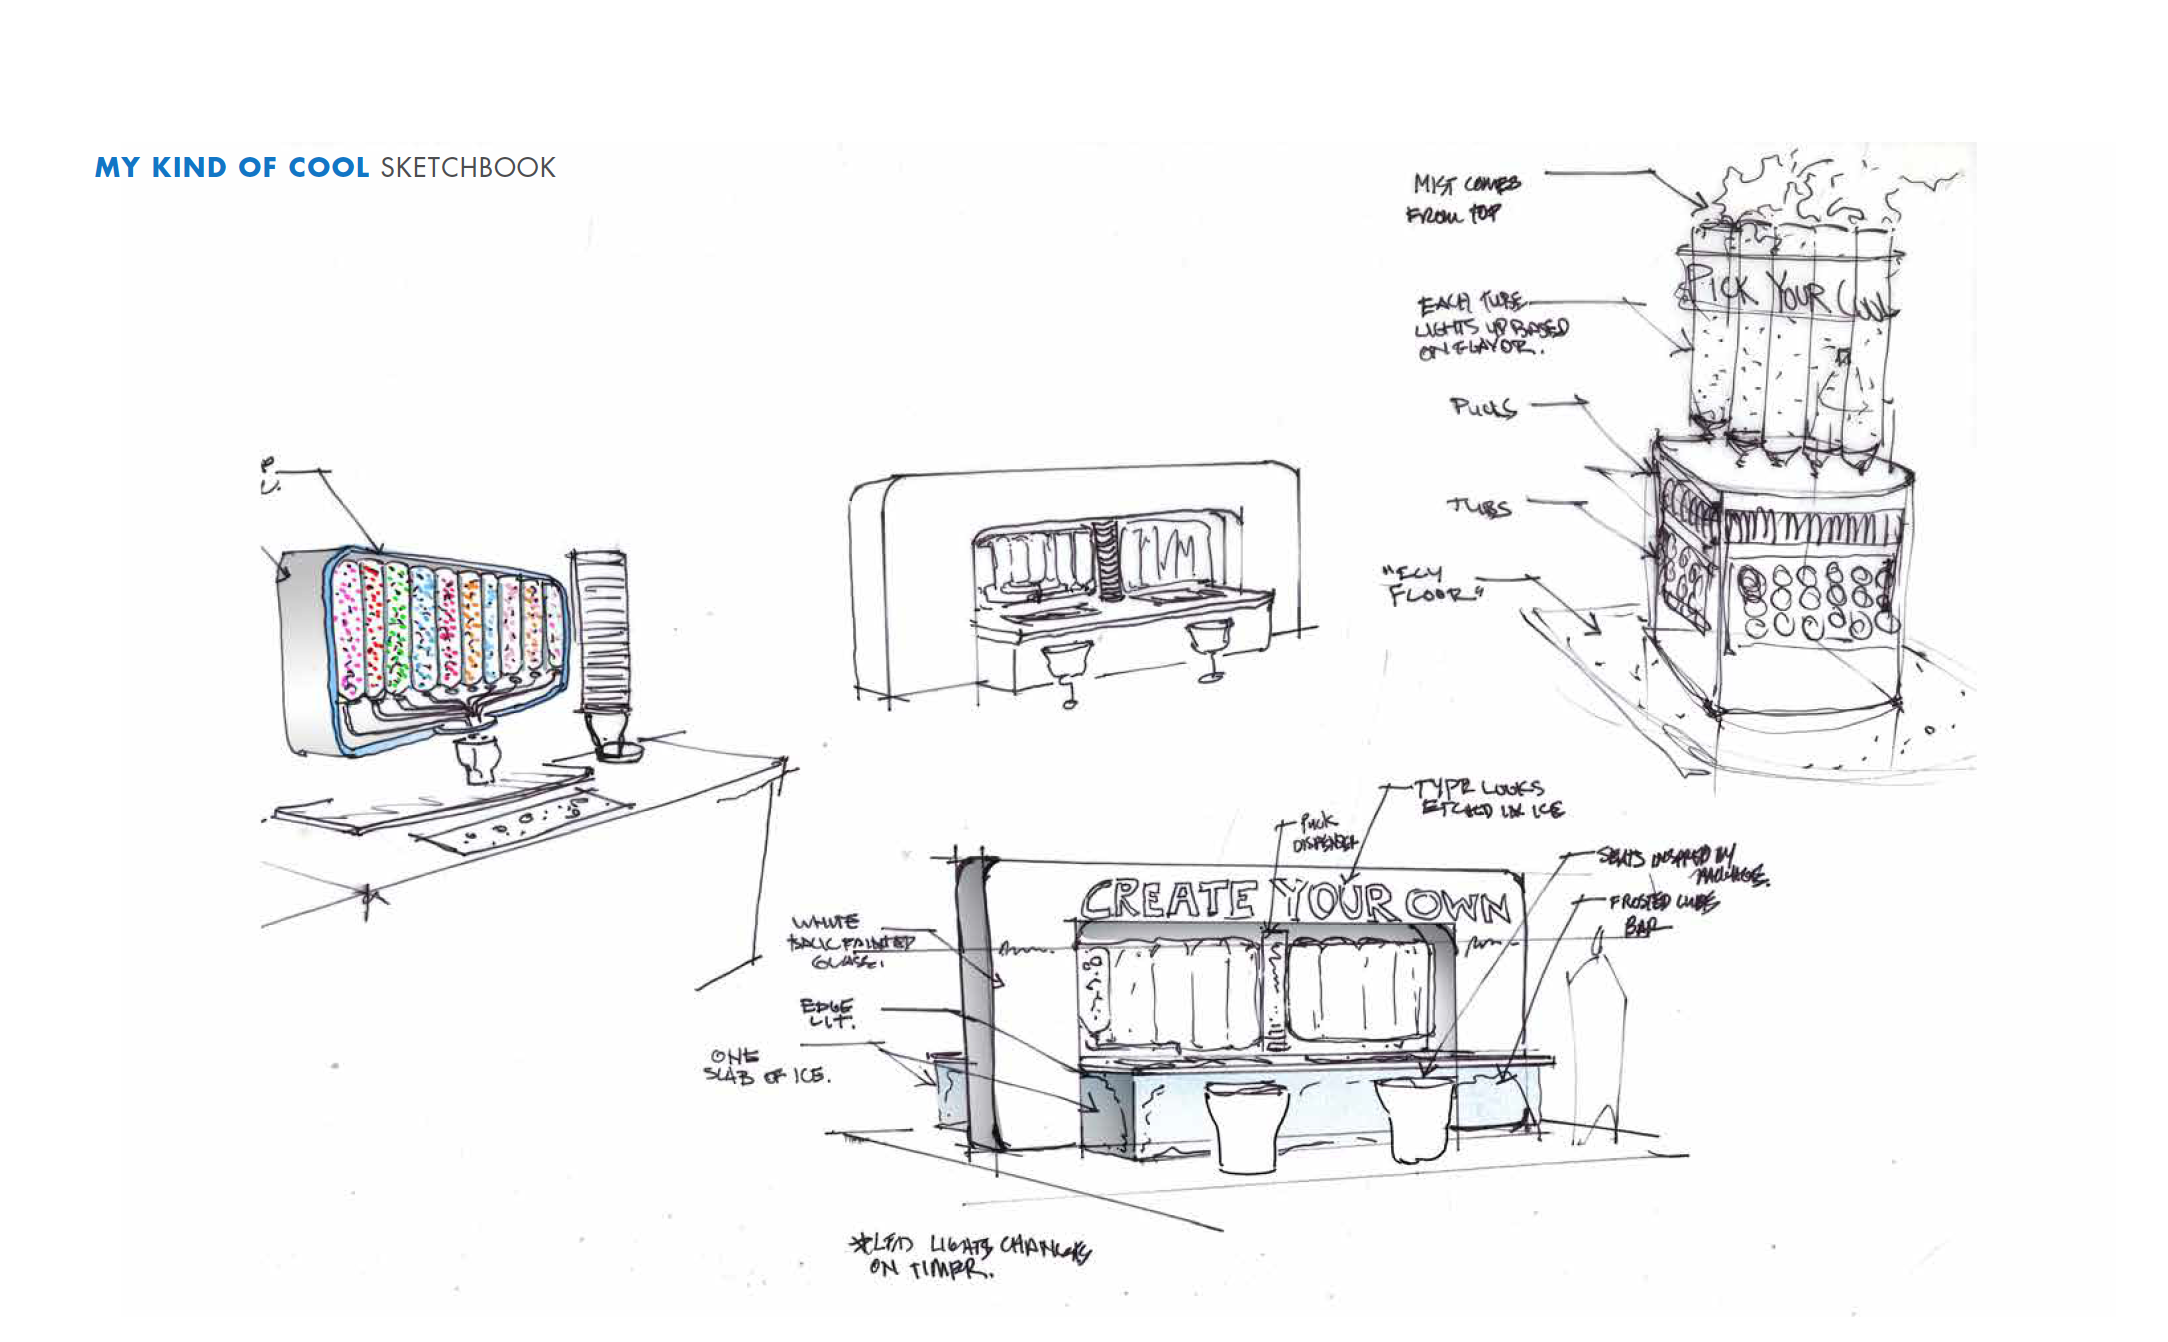 MY KIND OF COOL SKETCHBOOK
MIST COMES
FROM TOP
PICK YOUR COOL
EACH TUBE
LIGHTS UP BASED
ON FLAVOR.
PUCKS
TUBS
FLOOR"
TYPE LOOKS
ETCHED IN ICE
PUCK
DISPENSER
SEATS INSPIRED BY
PACKAGE.
FROSTED CUBE
BAR
CREATE YOUR OWN
WHITE
BACK PAINTED
GLASS.
EDGE
LIT.
ONE
SLAB OF ICE.
*LED LIGHTS CHANGES
ON TIMER.